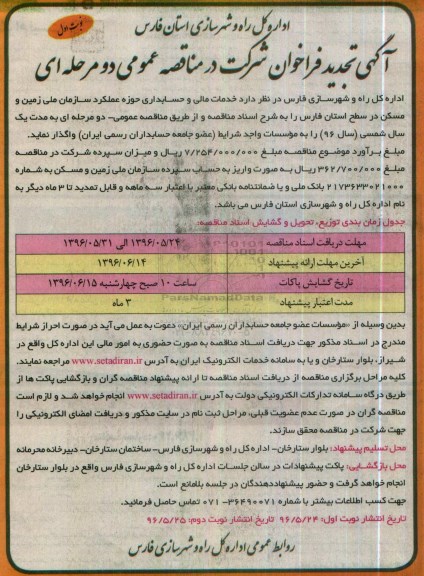 نوبت اول
اداره کل راه و شهرسازی استان فارس
آگهی تجدید فراخوان شرکت در مناقصه عمومی دو مرحله ای
اداره کل راه و شهرسازی فارس در نظر دارد خدمات مالی و حسابداری حوزه عملکرد سازمان ملی زمین و
مسکن در سطح استان فارس را به شرح اسناد مناقصه و از طریق مناقصه عمومی- دو مرحله ای به مدت یک
سال شمسی (سال ۹۶) را به مؤسسات واجد شرایط (عضو جامعه حسابداران رسمی ایران) واگذار نماید.
مبلغ برآورد موضوع مناقصه مبلغ ۷/۲۵۴/۰۰۰/۰۰۰ ریال و میزان سپرده شرکت در مناقصه
مبلغ ۳۶۲/۷۰۰/۰۰۰ ریال به صورت واریز به حساب سپرده سازمان ملی زمین و مسکن به شماره
۲۱۷۳۶۳۳۰۲۱۰۰۰ بانک ملی و یا ضمانتنامه بانکی معتبر با اعتبار سه ماهه و قابل تمدید تا ۳ ماه دیگر به
نام اداره کل راه و شهرسازی استان فارس می باشد.
جدول زمان بندی توزیع، تحویل و گشایش اسناد مناقصه:
مهلت دریافت اسناد مناقصه ۱۳۹۶/۰۵/۲۴ الی ۱۳۹۶/۰۵/۳۱
آخرین مهلت ارائه پیشنهاد ۱۳۹۶/۰۶/۱۴
تاریخ گشایش پاکات ساعت ۱۰ صبح چهارشنبه ۱۳۹۶/۰۶/۱۵
مدت اعتبار پیشنهاد ۳ ماه
بدین وسیله از «مؤسسات عضو جامعه حسابداران رسمی ایران» دعوت به عمل می آید در صورت احراز شرایط
مندرج در اسناد مذکور جهت دریافت اسناد مناقصه به صورت حضوری به امور مالی این اداره کل واقع در
شیراز، بلوار ستارخان و یا به سامانه خدمات الکترونیک ایران به آدرس www.setadiran.ir مراجعه نمایند.
کلیه مراحل برگزاری مناقصه از دریافت اسناد مناقصه تا ارائه پیشنهاد مناقصه گران و بازگشایی پاکت ها از
طریق درگاه سامانه تدارکات الکترونیکی دولت به آدرس www.setadiran.ir انجام خواهد شد و لازم است
مناقصه گران در صورت عدم عضویت قبلی، مراحل ثبت نام در سایت مذکور و دریافت امضای الکترونیکی را
جهت شرکت در مناقصه محقق سازند.
محل تسلیم پیشنهاد: بلوار ستارخان- اداره کل راه و شهرسازی فارس- ساختمان ستارخان- دبیرخانه محرمانه
محل بازگشایی: پاکت پیشنهادات در سالن جلسات اداره کل راه و شهرسازی فارس واقع در بلوار ستارخان
انجام خواهد گرفت و حضور پیشنهاددهندگان در جلسه بلامانع است.
جهت کسب اطلاعات بیشتر با شماره ۳۶۴۹۰۰۷۱- ۰۷۱ تماس حاصل فرمائید.
تاریخ انتشار نوبت اول: ۹۶/۵/۲۴ تاریخ انتشار نوبت دوم: ۹۶/۵/۲۵
روابط عمومی اداره کل راه و شهرسازی فارس